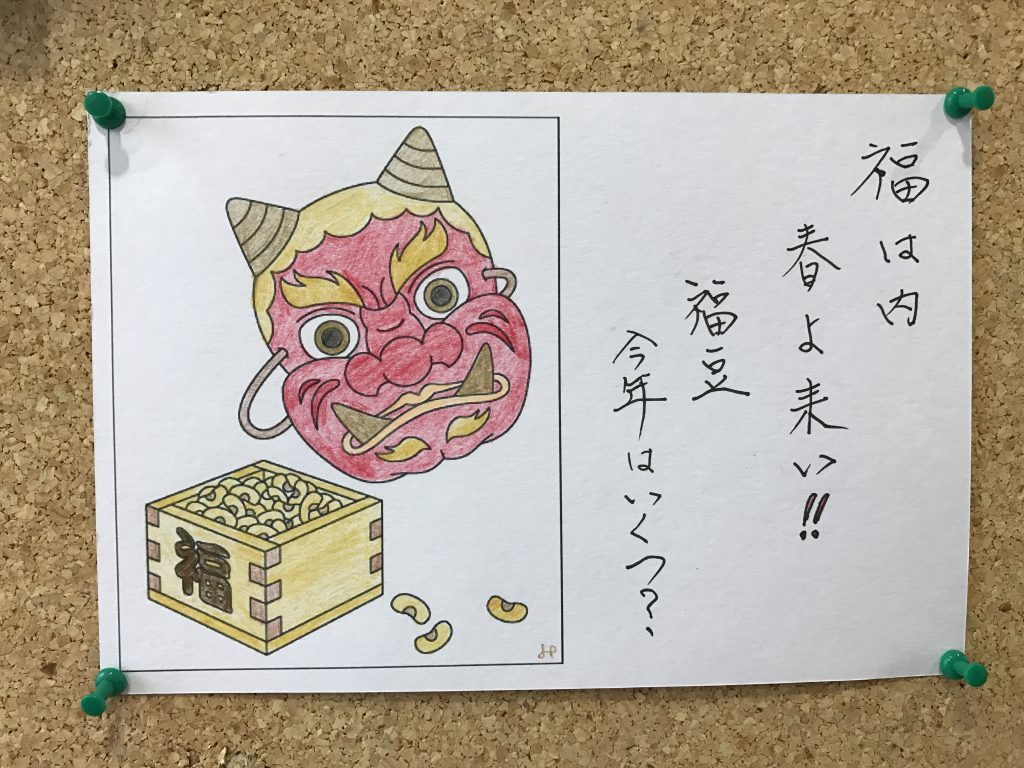 福は内
春よ来い!!
福豆
今年はいくつ?、
福